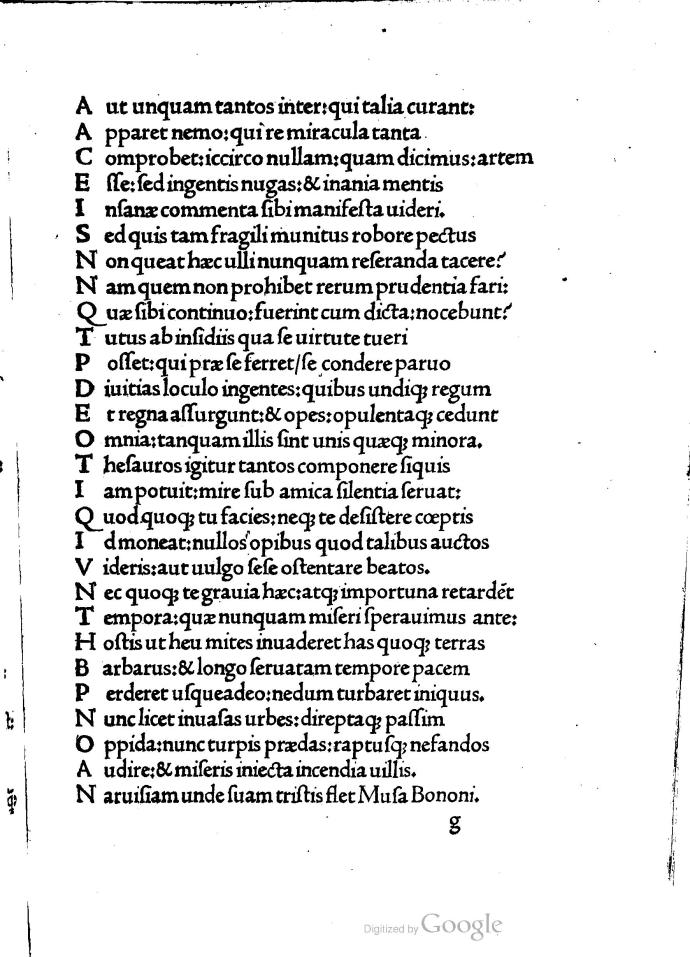 A ut unquam tantos inter:qui talia curant:
A pparet nemo:qui re miracula tanta
C omprobet:iccirco nullam:quam dicimus:artem
E ſſe:ſed ingentis nugas:& inania mentis
I nſanæ commenta ſibi manifeſta uideri.
S ed quis tam fragili munitus robore pectus
N on queat hæc ulli nunquam referanda tacere?
N am quem non prohibet rerum prudentia fari:
Q uæ ſibi continuo:fuerint cum dicta:nocebunt?
T utus ab inſidiis qua ſe uirtute tueri
P oſſet:qui præ ſe ferret/ſe condere paruo
D iuitias loculo ingentes:quibus undiqꝫ regum
E t regna aſſurgunt:& opes:opulentaqꝫ cedunt
O mnia:tanquam illis ſint unis quæqꝫ minora.
T heſauros igitur tantos componere ſiquis
I am potuit:mire ſub amica ſilentia ſeruat:
Q uod quoqꝫ tu facies:neqꝫ te deſiſtere cœptis
I d moneat:nullos opibus quod talibus auctos
V ideris:aut uulgo ſeſe oſtentare beatos.
N ec quoqꝫ te grauia hæc:atqꝫ importuna retardét
T empora:quæ nunquam miſeri ſperauimus ante:
H oſtis ut heu mites inuaderet has quoqꝫ terras
B arbarus:& longo ſeruatam tempore pacem
P erderet uſqueadeo:nedum turbaret iniquus.
N unc licet inuaſas urbes:direptaqꝫ paſſim
O ppida:nunc turpis prædas:raptuſqꝫ nefandos
A udire:& miſeris iniecta incendia uillis.
N aruiſiam unde ſuam triſtis flet Muſa Bononi.
g
Digitized by Google